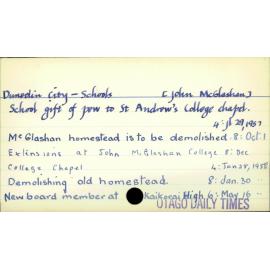 Dunedin City – Schools [John McGlashan]
School gift of pew to St Andrew's College chapel.
4: 29, 1957
McGlashan homestead is to be demolished. 8: Oct. 1
Extensions at John McGlashan College 8: Dec
College Chapel 4: Jan 28, 1958
Demolishing old homestead. 8: Jan. 30 "
New board member at Kaikorai High 6: May 16 "
OTAGO DAILY TIMES